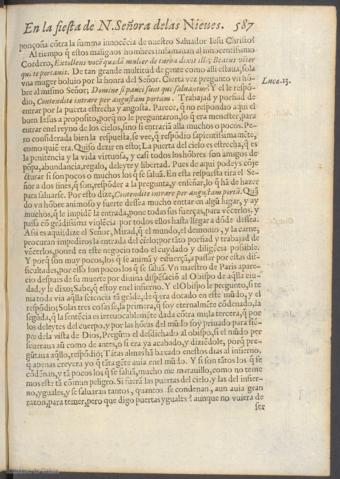 En la fiesta de N. Señora delas Nieues. 587
põçoña cõtra la summa innocẽcia de nuestro Saluador Iesu Christo!
Al tiempo q̃ estos malignos hombres infamauan al innocentissimo
Cordero, Extollens vocẽ quædã mulier de turba dixit illi; Beatus vẽter
qui te portauit. De tan grande multitud de gente como alli estaua, sola
vna muger boluio por la honra del Señor. Cierta vez pregunto vn hõ-
bre al mismo Señor; Domine si pauci sunt qui saluantur? Y el le respõ-
Luce. 13.
dio, Contendite intrare per angustam portam. Trabajad y porfiad de
entrar por la puerta estrecha y angosta. Parece, q̃ no respondio aqui el
buen Iesus a proposito, porq̃ no le preguntaron, lo q̃ era menester, para
entrar enel reyno de los cielos, sino si entraria alla muchos o pocos. Pe-
ro considerada bien la respuesta, se vee, q̃ respõdio sapientissimamẽte,
como quiẽ era. Quiso dezir en esto; La puerta del cielo es estrecha, q̃ es
la penitencia y la vida virtuosa, y casi todos los hõbres son amigos de
pãpa, abundancia, regalo, deleyte y libertad. Pues de aqui podeys cõje-
cturar si son pocos o muchos los q̃ se saluã. En esta respuesta tira el Se-
ñor a dos fines, q̃ son, respõder a la pregunta, y enseñar, lo q̃ ha de hazer
para saluarse. Por esto dize, Contendite intrare per angustam portã. Quã
do vn hõbre animoso y fuerte dessea mucho entrar en algũ lugar, y ay
muchos, q̃ le impidẽ la entrada, pone todas sus fuerças, para vẽcerlos, y
passa cõ grãdissima violẽcia por todos ellos hasta llegar a dõde dessea.
Assi es aqui dize el Señor, Mirad, q̃ el mundo, el demonio, y la carne,
procuran impediros la entrada del cielo: por tãto porfiad y trabajad de
vẽcerlos, poned en este negocio todo el cuydado y diligẽcia possible.
Y porq̃ son muy pocos, los q̃ se animã y esfuerçã, a passar por estas dif-
ficultades, por esso son pocos los q̃ se saluã. Vn maestro de Paris apare-
cio despues de su muerte por diuina dispẽsaciõ al Obispo de aq̃lla ciu-
dad, y le dixo; Sabe, q̃ estoy enel infierno. Y el Obispo le pregunto, si te
nia toda via aq̃lla sciencia tã grãde, de q̃ era docado en este mũdo, y el
respõdio; Solas tres cosas se, la primera, q̃ soy eternalmẽte cõdenado, la
segũda, q̃ la sentẽcia es irreuocablemẽte dada cõtra mi, la tercera, q̃ por
los deleytes del cuerpo, y por las hõras del mũdo soy priuado para siẽ-
pre dela vista de Dios, Pregũto el desdichado al obispo, si el mũdo per
seueraua aũ como de antes, o si era ya acabado, y diziẽdole, porq̃ pre-
gũtaua aq̃llo, respõdio; Tãtas almas hã baxado en estos dias al infierno,
q̃ apenas creyera yo q̃ tãta gẽte auia enel mũdo. Y si son tãtos los q̃ se
cõdenan, y tã pocos los q̃ se saluã, mucho me marauillo, como no teme
mos estãdo cõ tan comun peligro. Si fuerã las puertas del cielo, y las del infier-
no, yguales, y se saluaran tantos, quantos se condenan, aun auia gran
razon, para temer, pero que digo puertas yguales? aunque no vuiera de
ser